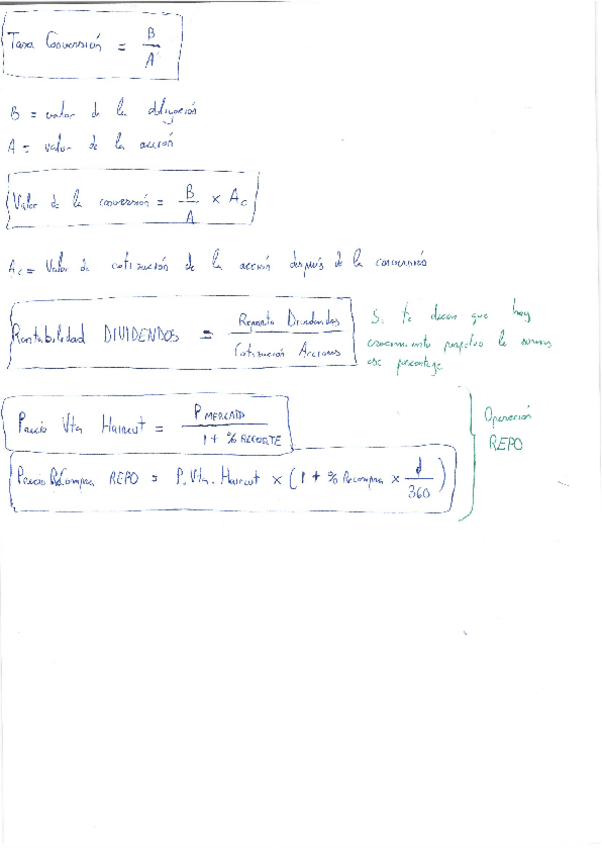 Tasa Conversión = B / A
B = valor de la obligación
A = valor de la acción
Valor de la conversión = B / A × Ac
Ac = Valor de cotización de la acción después de la conversión
Rentabilidad DIVIDENDOS = Reparto Dividendos / Cotización Acciones
Si te dicen que hay
crecimiento perpetuo le sumas
ese porcentaje
Precio Vta Haircut = P MERCADO / 1 + % RECORTE
Precio ReCompra REPO = P. Vta. Haircut × (1 + % Recompra × d / 360)
Operación
REPO